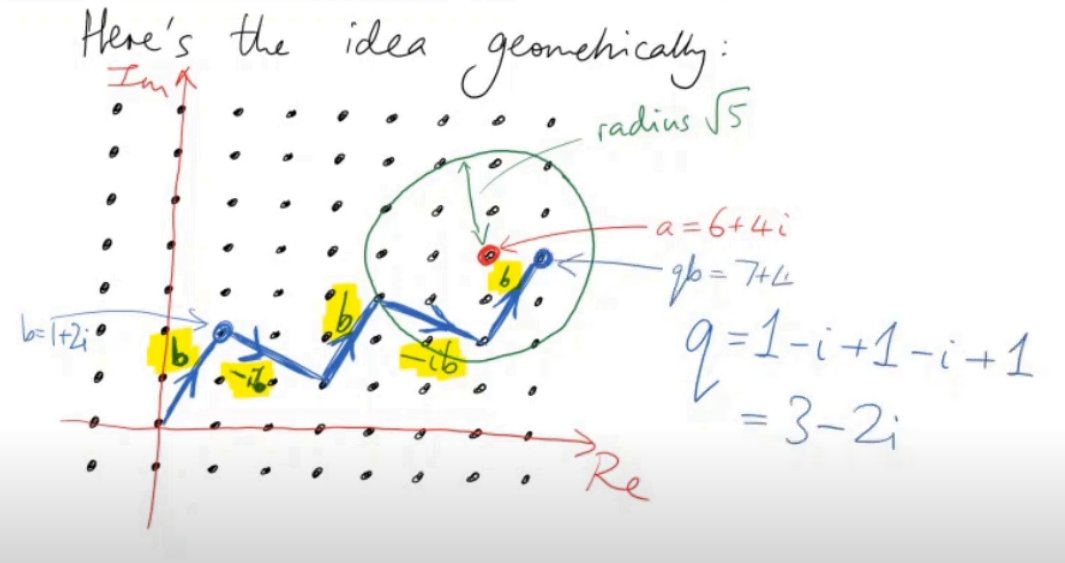 Here's the idea geometrically:
Im
radius √5
a=6+4i
qb=7+4i
b=1+2i
b
-ib
b
-ib
b
q=1-i+1-i+1
=3-2i
Re